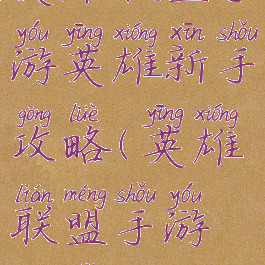 yóu yīng xióng xīn shǒu
游英雄新手
gōng lüè ( yīng xióng
攻略(英雄
lián méng shǒu yóu
联盟手游